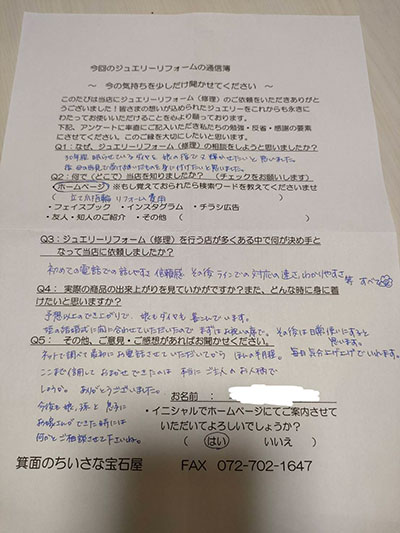 今回のジュエリーリフォームの通信簿
～ 今の気持ちを少しだけ聞かせてください ～
このたびは当店にジュエリーリフォーム（修理）のご依頼をいただきありがと
うございました！皆さまの想いが込められたジュエリーをこれからも永きに
わたってお使いいただけることを心より願っております。
下記、アンケートに率直にご記入いただき私たちの勉強・反省・感謝の要素
にさせてください。このご縁を大切にしたいと思います。
Q1：なぜ、ジュエリーリフォーム（修理）の相談をしようと思いましたか？
30年程眠らせていたダイヤを娘の指で輝かせたいと思いました。
Q2：何で（どこで）当店を知りましたか？ （チェックをお願いします）
ホームページ ※もし覚えておられたら検索ワードを教えてくださいませ
（ 立て爪指輪 リフォーム 費用 ）
・フェイスブック ・インスタグラム ・チラシ広告
・友人・知人のご紹介 ・その他（ ）
Q3：ジュエリーリフォーム（修理）を行う店が多くある中で何が決め手と
なって当店に依頼しましたか？
初めての電話での話しやすさ 信頼感 その後ラインでの対応の速さ、わかりやすさ 等 すべて
Q4： 実際の商品の出来上がりを見ていかがですか？また、どんな時に身に着
けたいと思いますか？
予想以上のでき上がりで、娘もダイヤも喜こんでいます。
妹の結婚式に間に合わせていただいたので まずはお祝いの席で。その後は日常使いにすると
思います。
Q5： その他、ご意見・ご感想があればお聞かせください。
ネットで調べて最初にお電話させていただいてから ほんの半月程。
ここまで信用しておまかせできたのは 本当に ご主人のお人柄で
しょうか。 ありがとうございました。
今後も娘、孫と息子に
お嫁さんができた時には
何かとご相談させて下さいね。
お名前：
・イニシャルでホームページにてご案内させて
いただいてよろしいでしょうか？
（ はい いいえ ）
箕面のちいさな宝石屋 FAX 072-702-1647